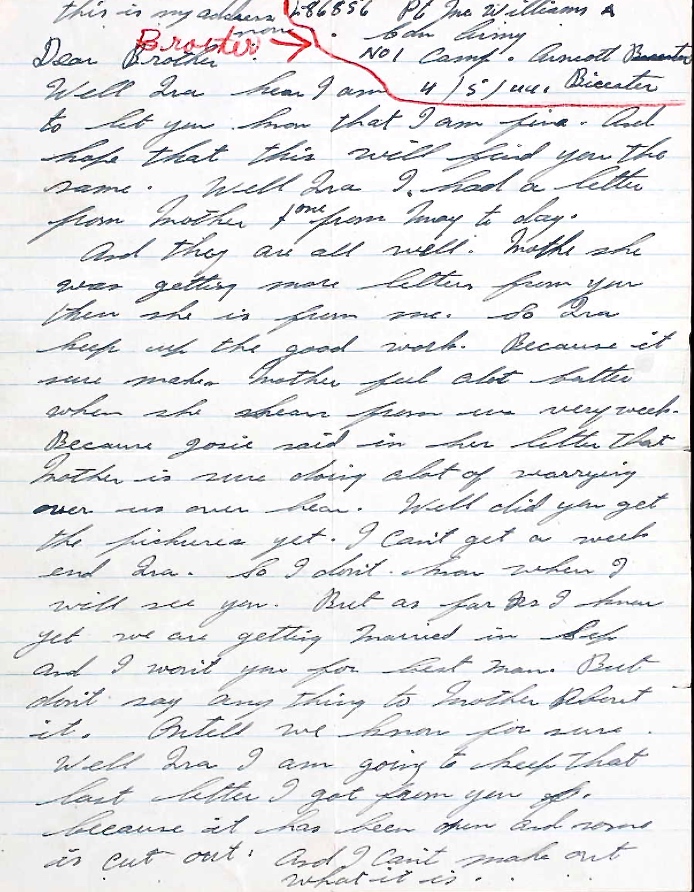 this is my address L86856 Pt Jno Williams A
now. Cdn Army
Brother →
Dear Brother No 1 Camp. Arncott Bicester
Well Ira hear I am 4/5/44. Bicester
to let you know that I am fine. And
hope that this will find you the
same. Well Ira I. had a letter
from Mother & one from May to day.
And they are all well. Mothe she
was getting more letters from you
then she is from me. So Ira
keep up the good work. Because it
sure makes Mother feel alot batter
when she shears from us very week.
Because josie said in her letter that
Mother is sure doing alot of warrying
over us over hear. Well did you get
the pichures yet. I Can't get a week
end Ira. So I don't know when I
will see you. But as far As I know
yet we are getting Married in Sep
and I won't you for best man. But
don't say any thing to Mother About
it. Ontell we know for sure.
Well Ira I am going to keep that
last letter I got from you
because it has been open and some
is cut out. And I Can't make out
what it is.